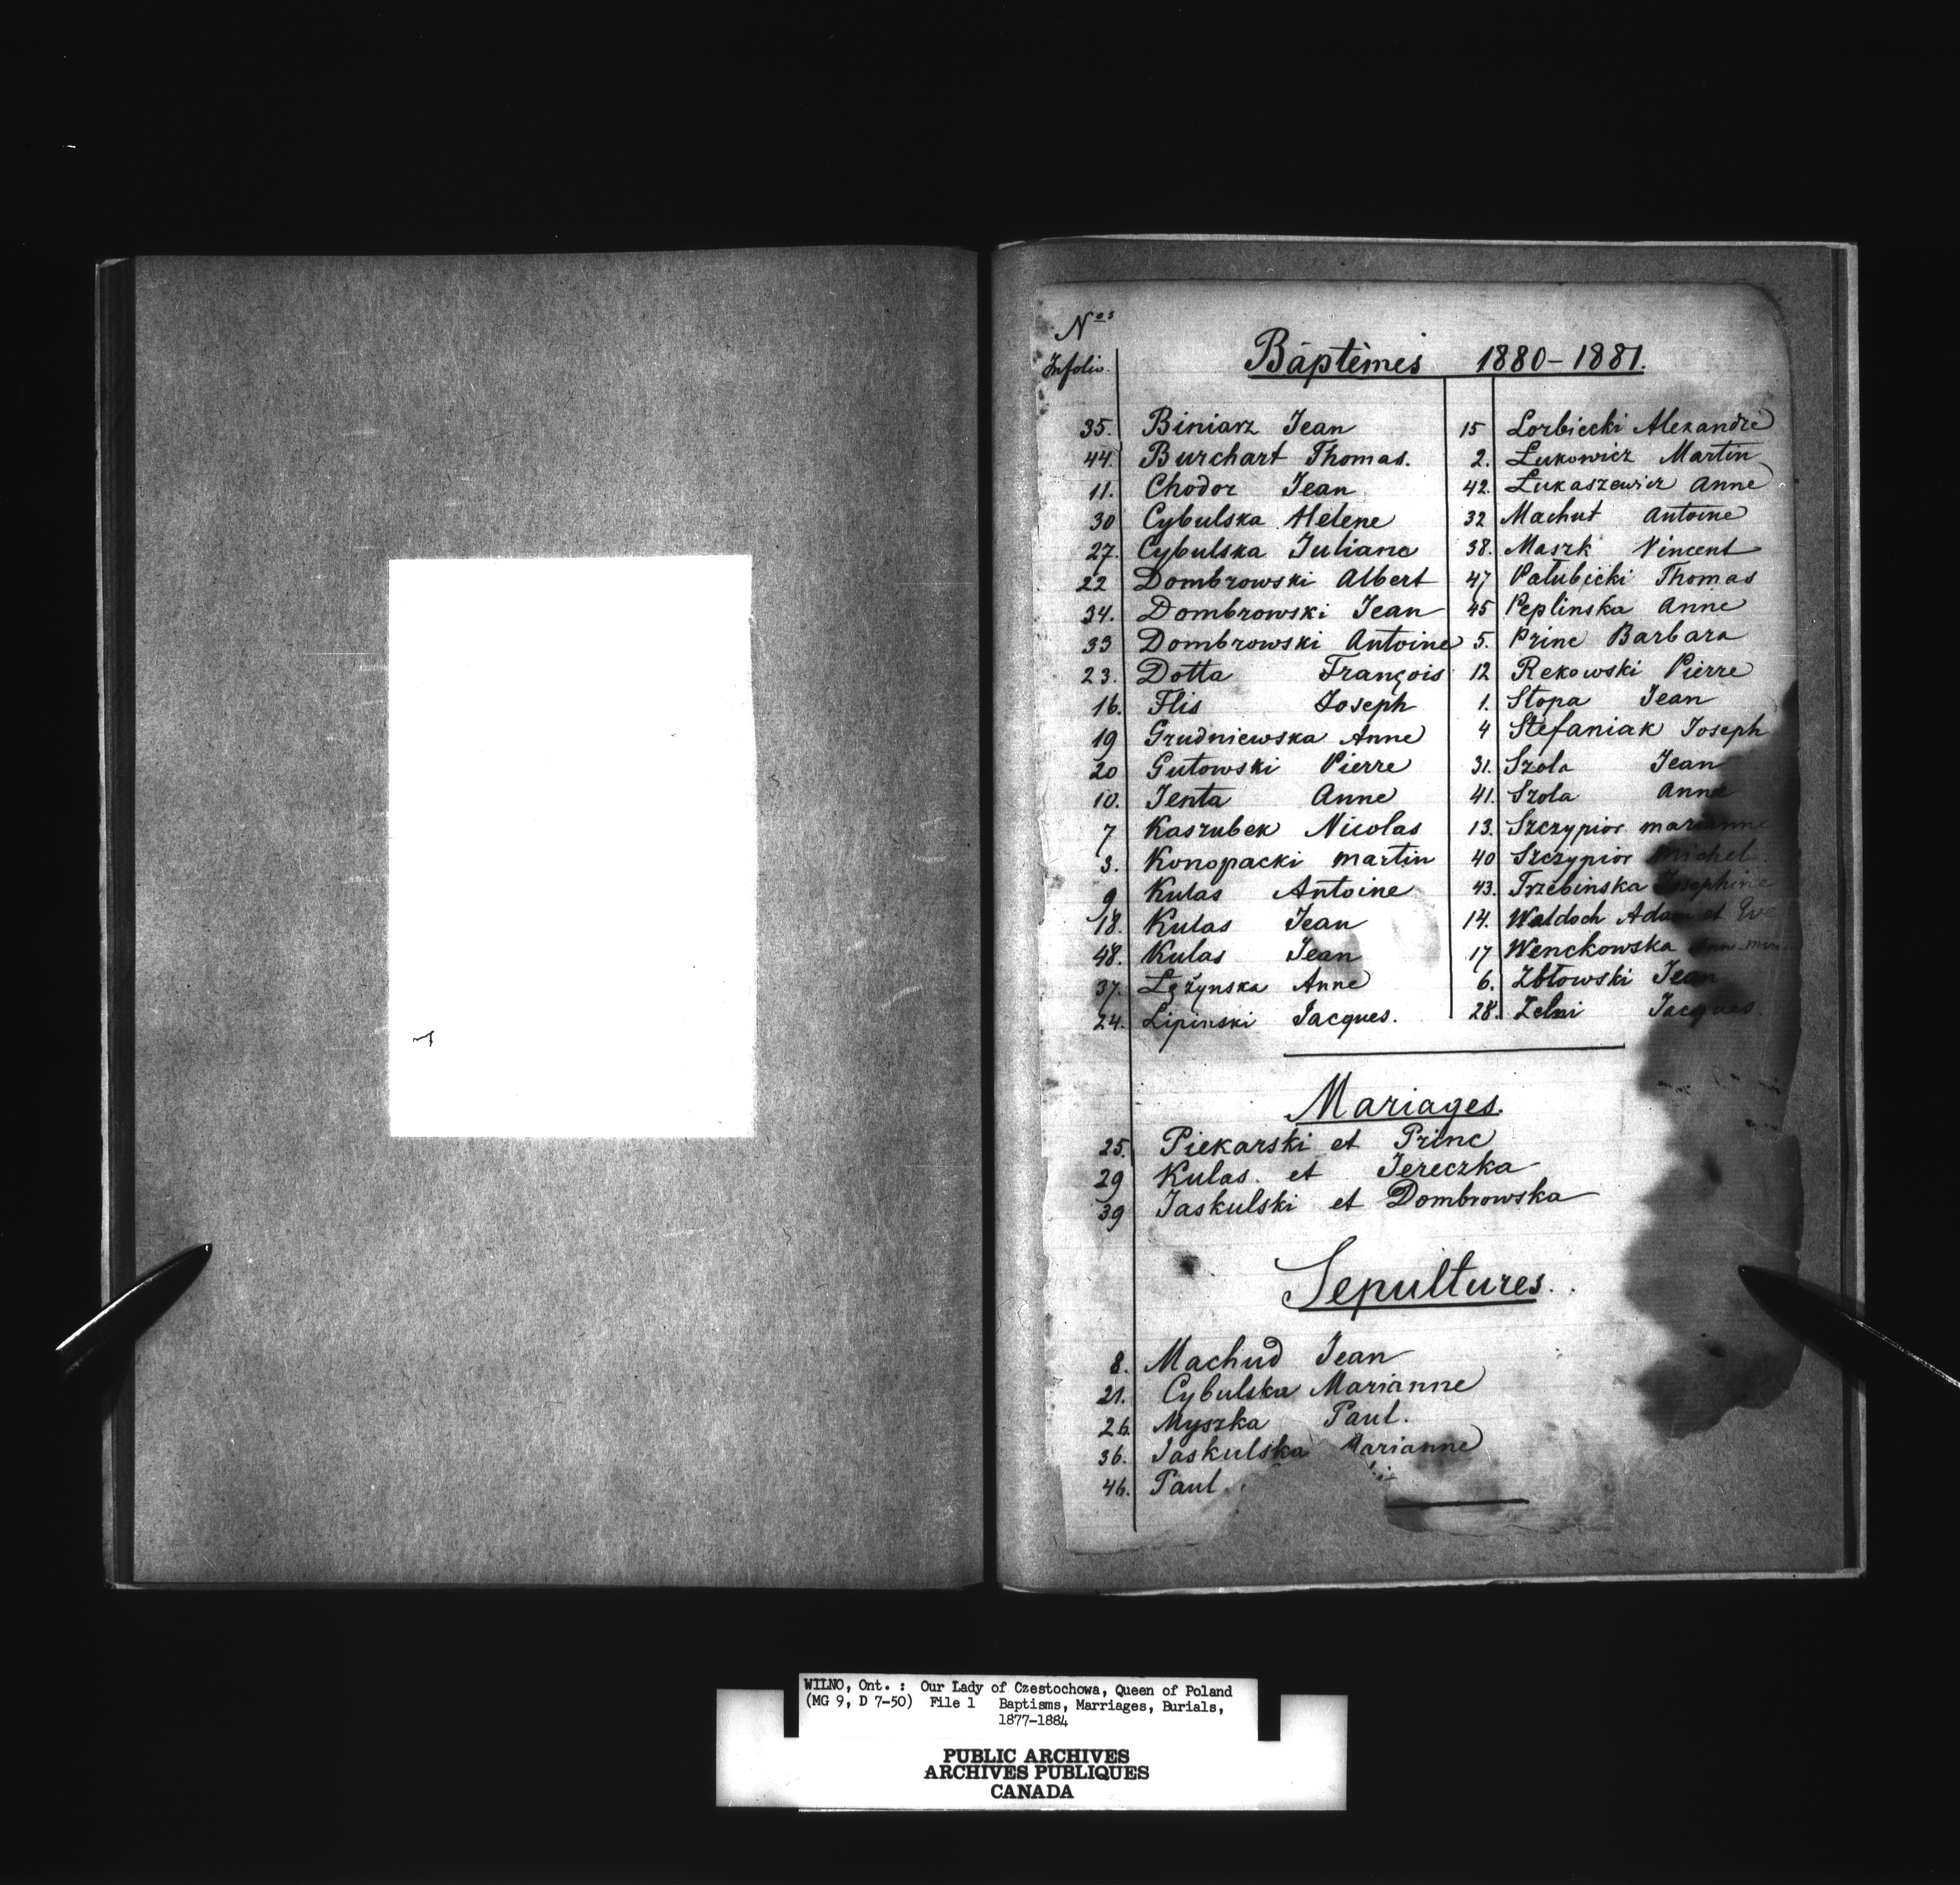 Nos
Infolio.
Baptêmes 1880-1881.
35. Biniarz Jean
44. Burchart Thomas.
11. Chodor Jean
30 Cybulska Helene
27. Cybulska Juliane
22 Dombrowski Albert
34. Dombrowski Jean
33 Dombrowski Antoine
23. Dotta François
16. Flis Joseph
19 Grudniewska Anne
20 Gutowski Pierre
10. Jenta Anne
7 Kaszubek Nicolas
3. Konopacki Martin
9 Kulas Antoine
18. Kulas Jean
48. Kulas Jean
37. Lężynska Anne
24. Lipinski Jacques.
15 Lorbiecki Alexandre
2. Lukowicz Martin
42. Lukaszewicz Anne
32 Machut Antoine
38. Maszk Vincent
47 Patubicki Thomas
45 Peplinska Anne
5. Princ Barbara
12 Rekowski Pierre
1. Stopa Jean
4 Stefaniak Joseph
31. Szola Jean
41. Szola Anne
13. Szczypior marianne
40 Szczypior Michel
43. Trzebinska Josephine
14. Waldoch Adam et Eve
17 Wenckowska
6. Zbtowski Jean
28. Zelni Jacques.
Mariages.
25. Piekarski et Princ
29 Kulas. et Jereczka
39 Jaskulski et Dombrowska
Sepultures.
8. Machud Jean
21. Cybulska Marianne
26. Myszka Paul.
36. Jaskulska Marianne
46. Paul
WILNO, Ont. : Our Lady of Czestochowa, Queen of Poland
(MG 9, D 7-50) File 1 Baptisms, Marriages, Burials,
1877-1884
PUBLIC ARCHIVES
ARCHIVES PUBLIQUES
CANADA